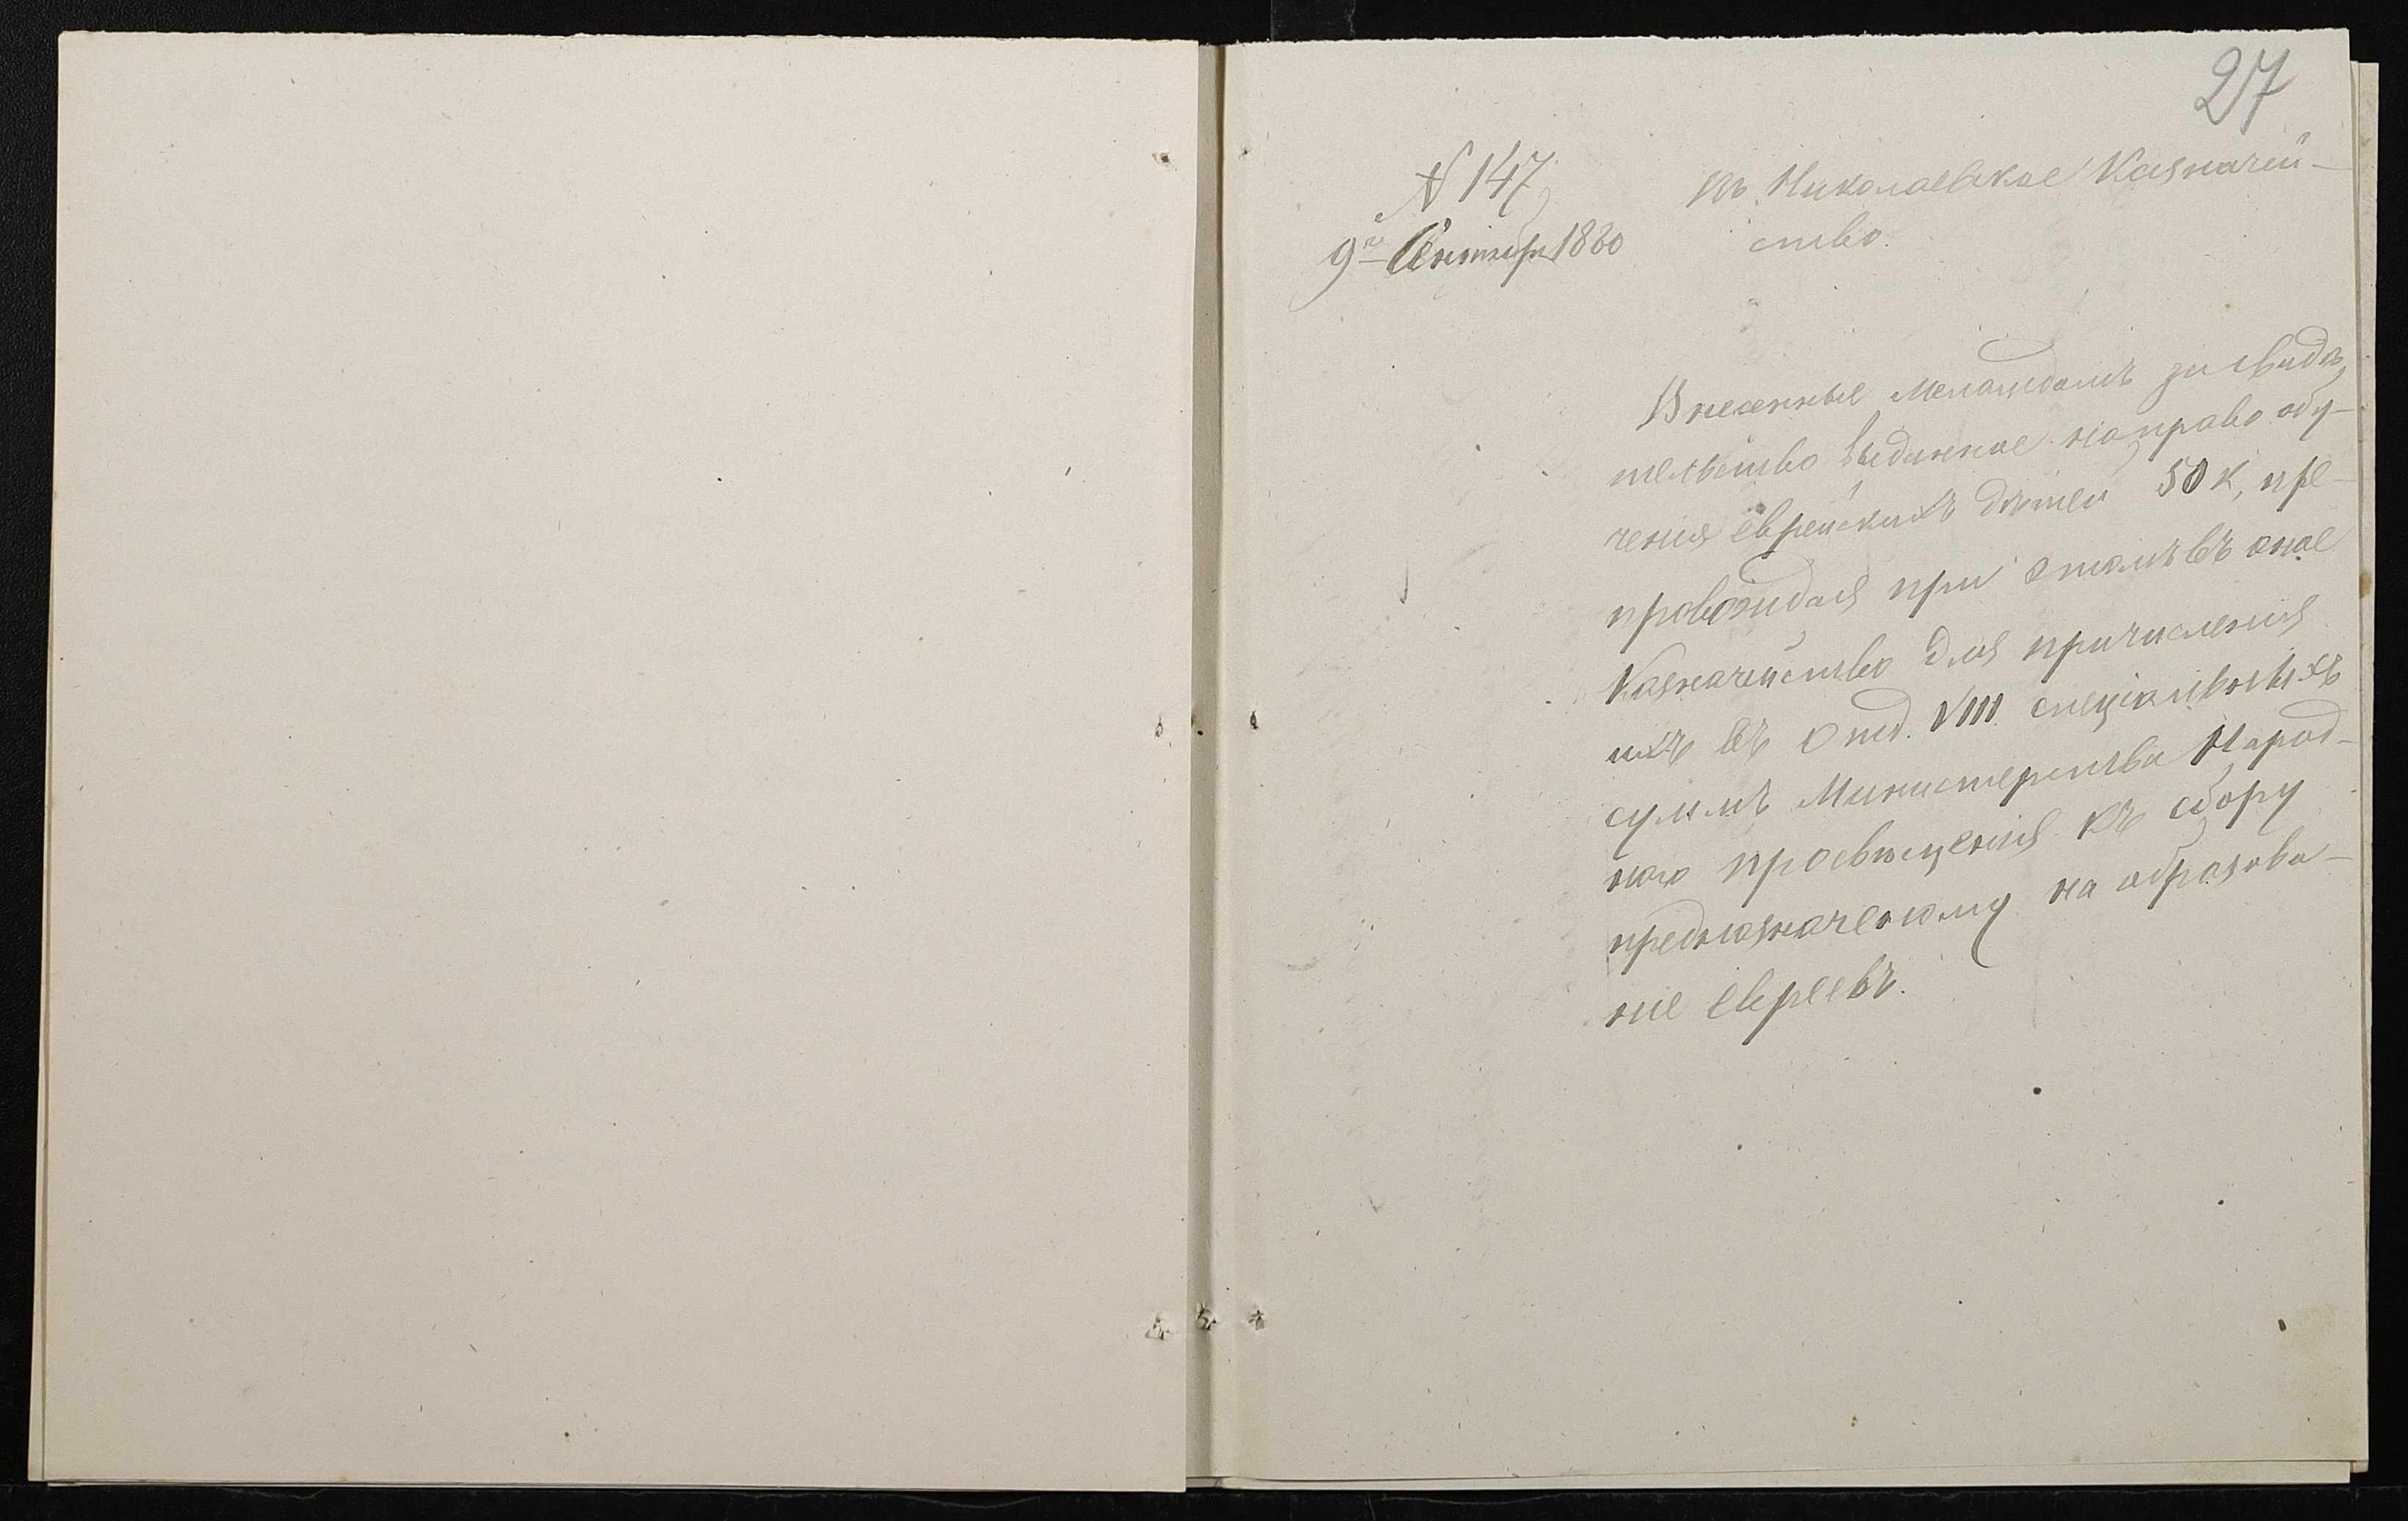 27
N 147
9го Сентября 1880
Въ Николаевское Казначей-
ство.
Внесенные меламдомъ за свидѣ
тельство выданное на право обу-
ченія еврейскихъ дѣтей 50 к, пре-
провождая при этомъ въ оное
Казначейство для причисленія
ихъ въ отд. VIII спеціальныхъ
суммъ Министерства Народ-
наго просвѣщенія къ сбору
предназначеному на образова-
ніе евреевъ.